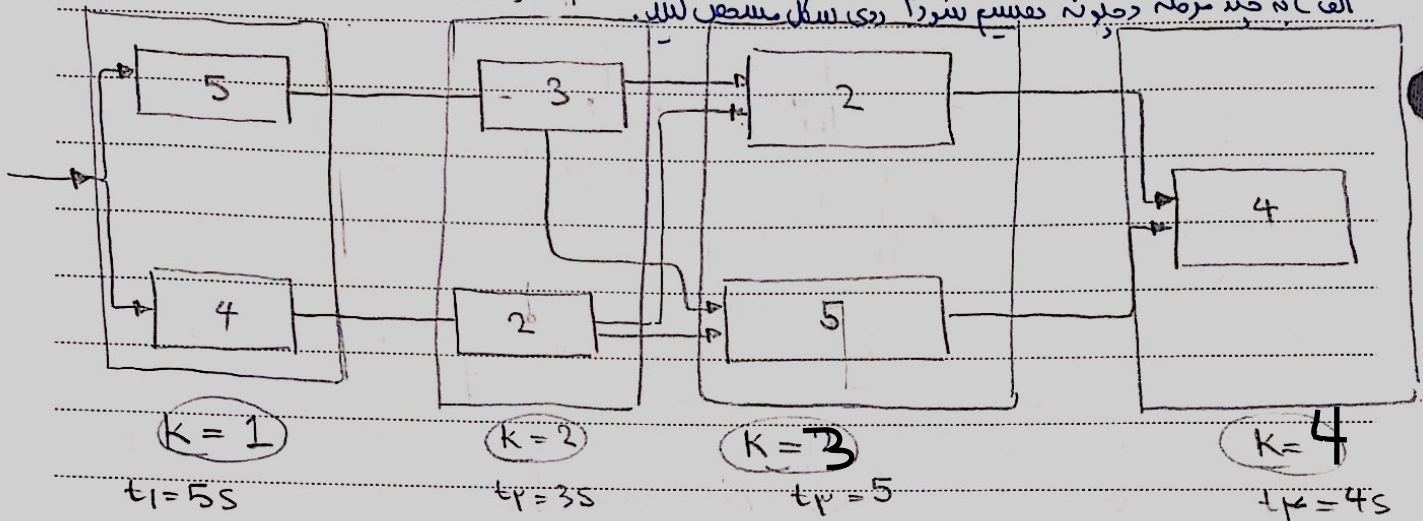 الف) به چند مرحله و چگونه تقسیم شود؟ روی شکل مشخص کنید.
5 3 2
4
4 2 5
K = 1 K = 2 K = 3 K = 4
t۱ = 5s t۲ = 3s t۳ = 5 t۴ = 4s